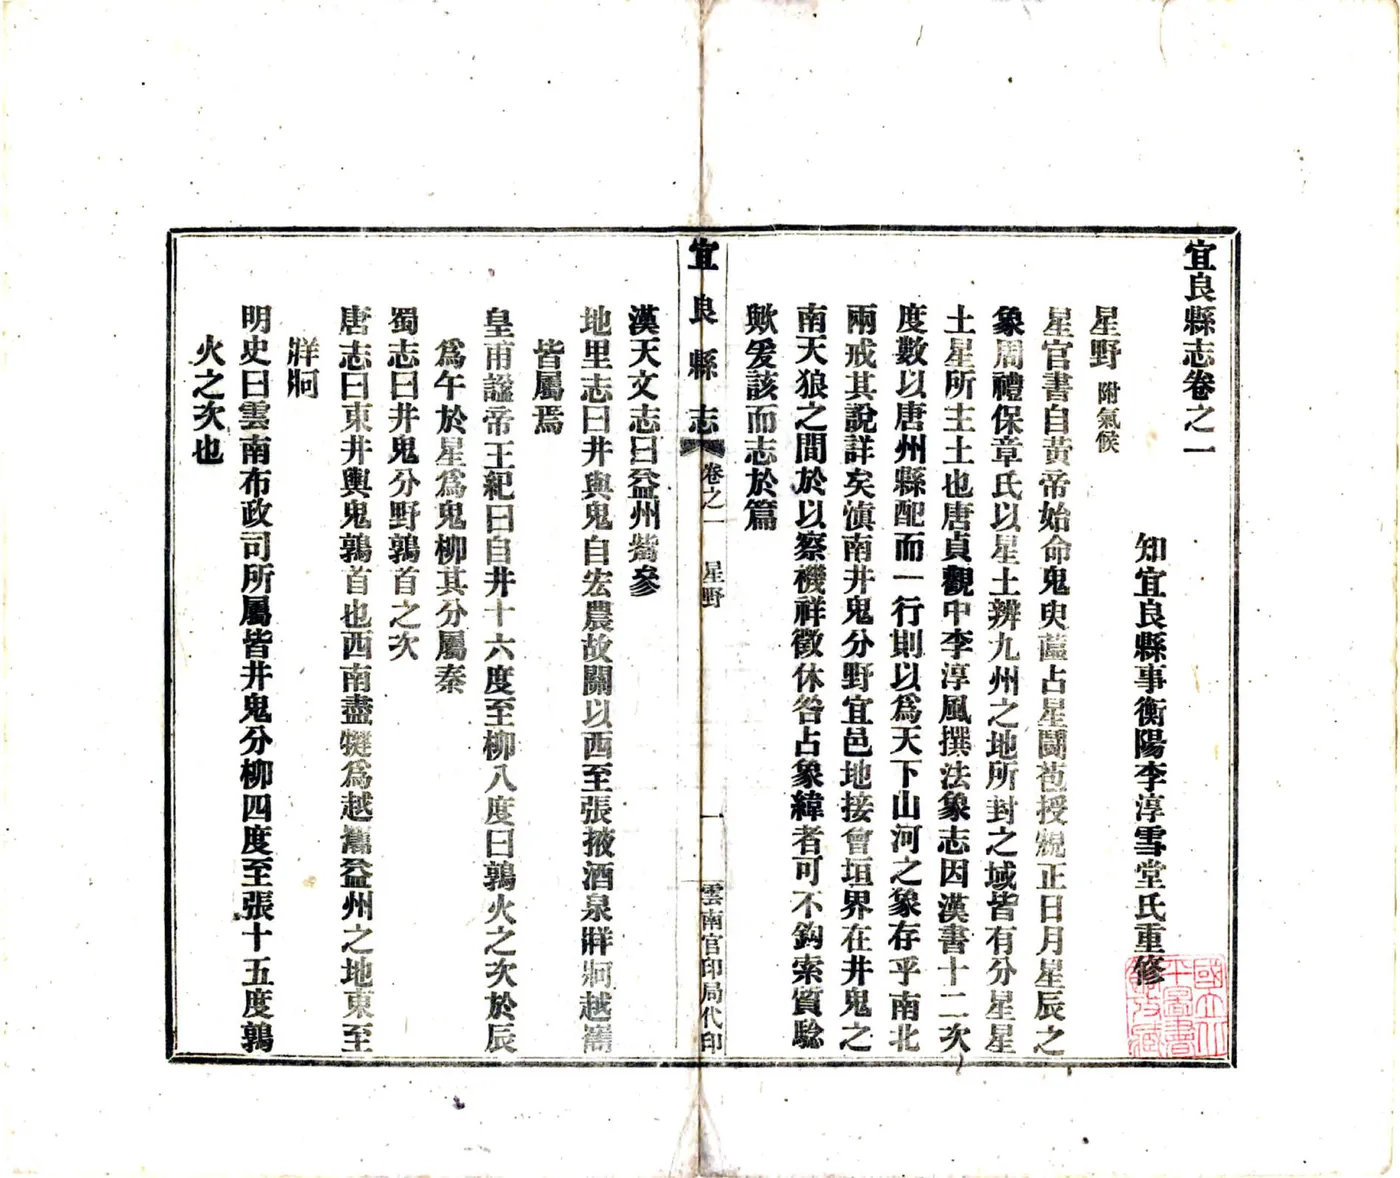 宜良縣志卷之一
知宜良縣事衡陽李淳雪堂氏重修
星野 附氣候
星官書自黃帝始命鬼臾蓲占星鬭苞授規正日月星辰之
象周禮保章氏以星土辨九州之地所封之域皆有分星星
土星所主土也唐貞觀中李淳風撰法象志因漢書十二次
度數以唐州縣配而一行則以爲天下山河之象存乎南北
兩戒其說詳矣滇南井鬼分野宜邑地接會垣界在井鬼之
南天狼之間於以察機祥徵休咎占象緯者可不鈎索質驗
歟爰該而志於篇
宜良縣志 卷之一 星野 一 雲南官印局代印
漢天文志曰益州觜參
地里志曰井與鬼自宏農故關以西至張掖酒泉牂牁越嶲
皆屬焉
皇甫謐帝王紀曰自井十六度至柳八度曰鶉火之次於辰
爲午於星爲鬼柳其分屬秦
蜀志曰井鬼分野鶉首之次
唐志曰東井輿鬼鶉首也西南盡犍爲越嶲益州之地東至
牂牁
明史曰雲南布政司所屬皆井鬼分柳四度至張十五度鶉
火之次也
國立北平圖書館收藏